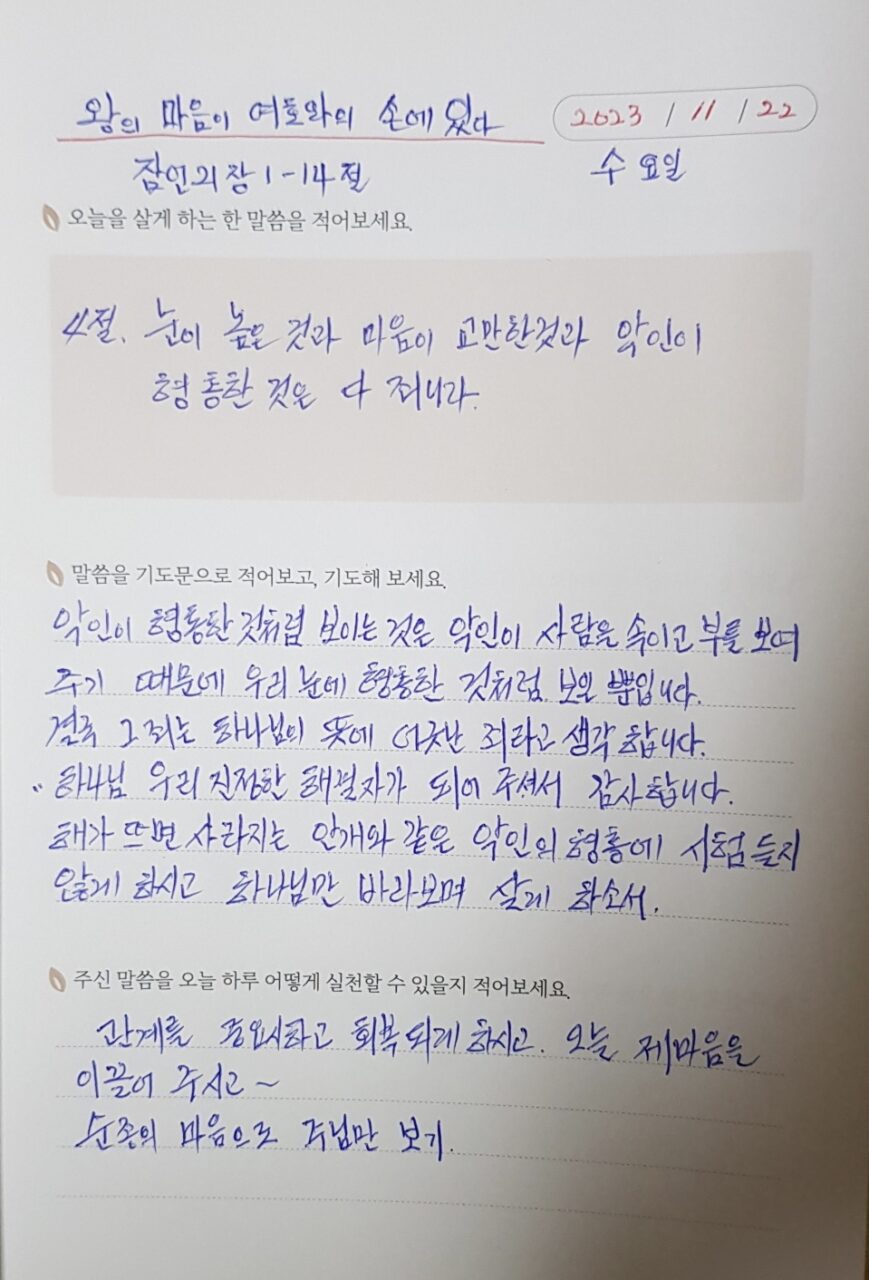 왕의 마음이 여호와의 손에 있다
2023 / 11 / 22
잠언 21장 1-14절
수요일
오늘을 살게 하는 한 말씀을 적어보세요.
4절. 눈이 높은 것과 마음이 교만한것과 악인이
형통한 것은 다 죄니라.
말씀을 기도문으로 적어보고, 기도해 보세요.
악인이 형통한 것처럼 보이는 것은 악인이 사람을 속이고 부를
주기 때문에 우리 눈에 형통한 것처럼 보일 뿐입니다.
결국 그 죄는 하나님의 뜻에 어긋난 죄라고 생각합니다.
" 하나님 우리 진정한 해결자가 되어 주셔서 감사합니다.
해가 뜨면 사라지는 안개와 같은 악인의 형통에 시험 들지
않게 하시고 하나님만 바라보며 살게 하소서.
주신 말씀을 오늘 하루 어떻게 실천할 수 있을지 적어보세요.
관계를 중요시하고 회복되게 하시고. 오늘 제마음을
이끌어 주시고~
순종의 마음으로 주님만 보기.